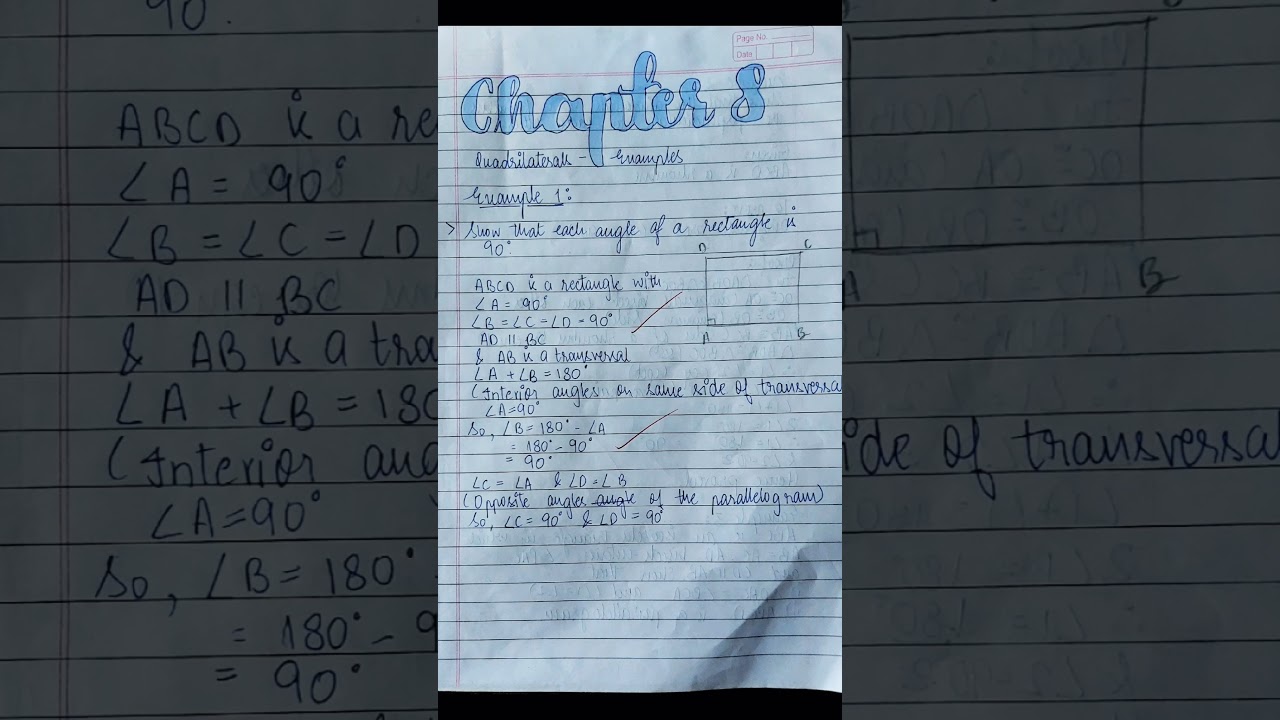 Page No.
Date
Chapter 8
Quadrilaterals - Examples
Example 1:
> Show that each angle of a rectangle is
90°.
D C
ABCD is a rectangle with
∠A = 90°
∠B = ∠C = ∠D = 90°
AD || BC
A B
& AB is a transversal
∠A + ∠B = 180°
(Interior angles on same side of transversal
∠A = 90°
So, ∠B = 180° - ∠A
= 180° - 90°
= 90°
∠C = ∠A & ∠D = ∠B
(Opposite angles angle of the parallelogram)
So, ∠C = 90° & ∠D = 90°